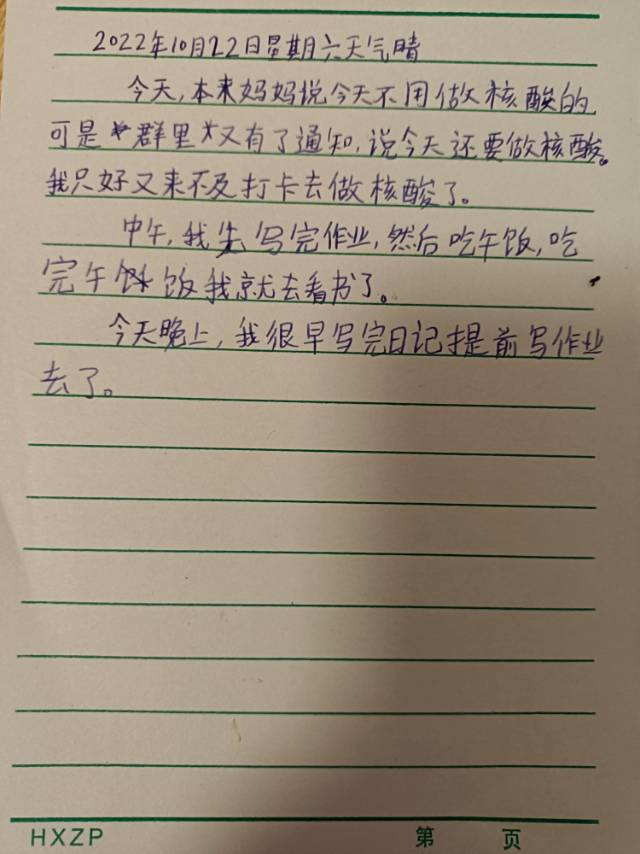 2022年10月22日星期六天气晴
今天,本来妈妈说今天不用做核酸的
可是*群里*又有了通知,说今天还要做核酸。
我只好又来不及打卡去做核酸了。
中午,我先写完作业,然后吃午饭,吃
完午饭我就去看书了。
今天晚上,我很早写完日记提前写作业
去了。
HXZP 第 页